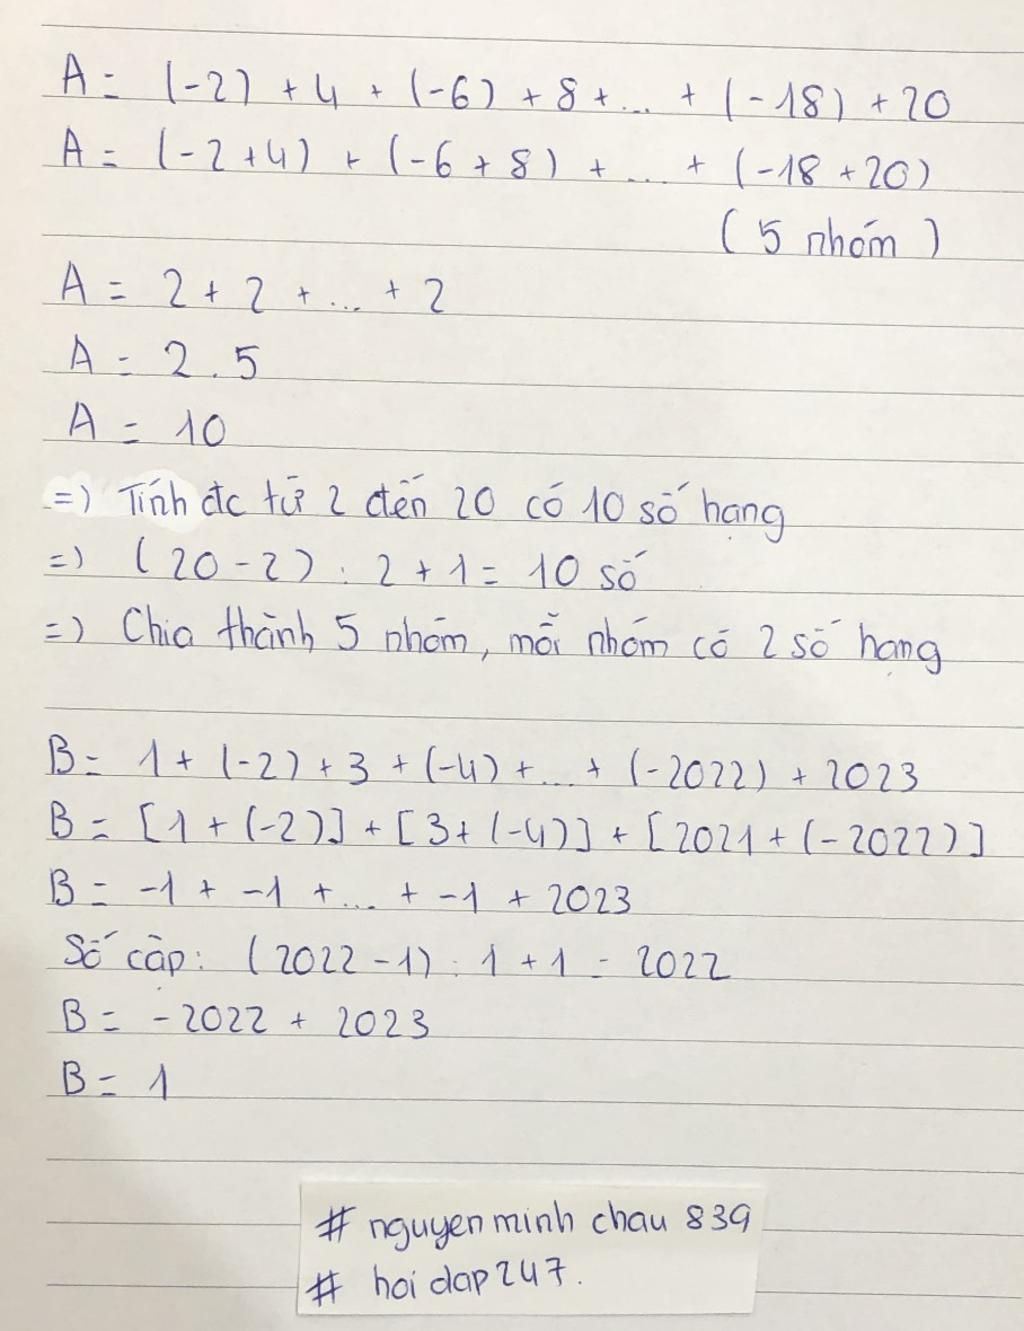 A = (-2) + 4 + (-6) + 8 + ... + (-18) + 20
A = (-2 + 4) + (-6 + 8) + ... + (-18 + 20)
(5 nhóm)
A = 2 + 2 + ... + 2
A = 2 . 5
A = 10
=) Tính đc từ 2 đến 20 có 10 số hạng
=) (20 - 2) : 2 + 1 = 10 số
=) Chia thành 5 nhóm, mỗi nhóm có 2 số hạng
B = 1 + (-2) + 3 + (-4) + ... + (-2022) + 2023
B = [1 + (-2)] + [3 + (-4)] + [2021 + (-2022)]
B = -1 + -1 + ... + -1 + 2023
Số cặp: (2022 - 1) : 1 + 1 = 2022
B = -2022 + 2023
B = 1
# nguyenminh chau 839
# hoi dap 247.